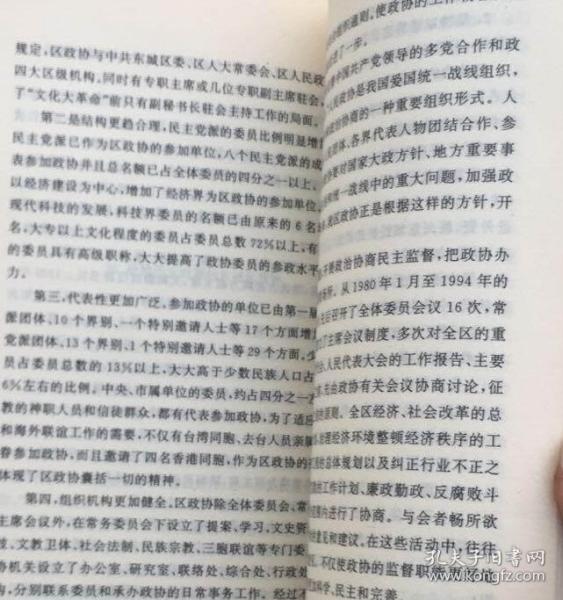 规定,区政协与中共东城区委、区人大常委会、区人民政
四大区级机构,同时有专职主席或几位专职副主席驻会,
了“文化大革命”前只有副秘书长驻会主持工作的局面。
第二是结构更趋合理,民主党派的委员比例明显增
民主党派已作为区政协的参加单位,八个民主党派的成
表参加政协并且总名额已占全体委员的四分之一以上。
以经济建设为中心,增加了经济界为区政协的参加单位,
现代科技的发展,科技界委员的名额已由原来的6名
名,大专以上文化程度的委员占委员总数72%以上,有
的委员具有高级职称,大大提高了政协委员的参政水平
力。
第三,代表性更加广泛,参加政协的单位已由第一届
派团体、10个界别、一个特别邀请人士等17个方面增
党派团体、13个界别、1个特别邀请人士等29个方面,少
员占委员总数的13%以上,大大高于少数民族人口占
6%左右的比例。中央、市属单位的委员,约占四分之一
教的神职人员和信徒群众,都有代表参加政协,为了适应
和海外联谊工作的需要,不仅有台湾同胞、去台人员亲属
眷参加政协,而且邀请了四名香港同胞,作为区政协的
体现了区政协囊括一切的精神。
第四,组织机构更加健全。区政协除全体委员会、常
主席会议外,在常务委员会下设立了提案、学习、文史资
文教卫体、社会法制、民族宗教、三胞联谊等专门委
协机关设立了办公室、研究室、联络处、综合处、行政处
构,分别联系委员和承办政协的日常事务工作。经过
织的通则,使政协的工作
进了一步。
中国共产党领导的多党合作和政
人民政协是我国爱国统一战线组织,
政治协商的一种重要组织形式。人
团体、各界代表人物团结合作、参
要对国家大政方针、地方重要事
统一战线中的重大问题,加强政
我区政协正是根据这样的方针,开
政治协商民主监督,把政协办
所。从1980年1月至1994年的
后召开了全体委员会议16次,常
了主席会议制度,多次对全区的重
人民代表大会的工作报告、主要
先由政协有关会议协商讨论,征
的原则。全区经济、社会改革的总
治理经济环境整顿经济秩序的工
总体规划以及纠正行业不正之
工作计划、廉政勤政、反腐败斗
内进行了协商。与会者畅所欲
意见和建议。在这些活动中,往往
不仅使政协的监督职能更
科学、民主和完善。
孔夫子旧书网
www.kongfz.com